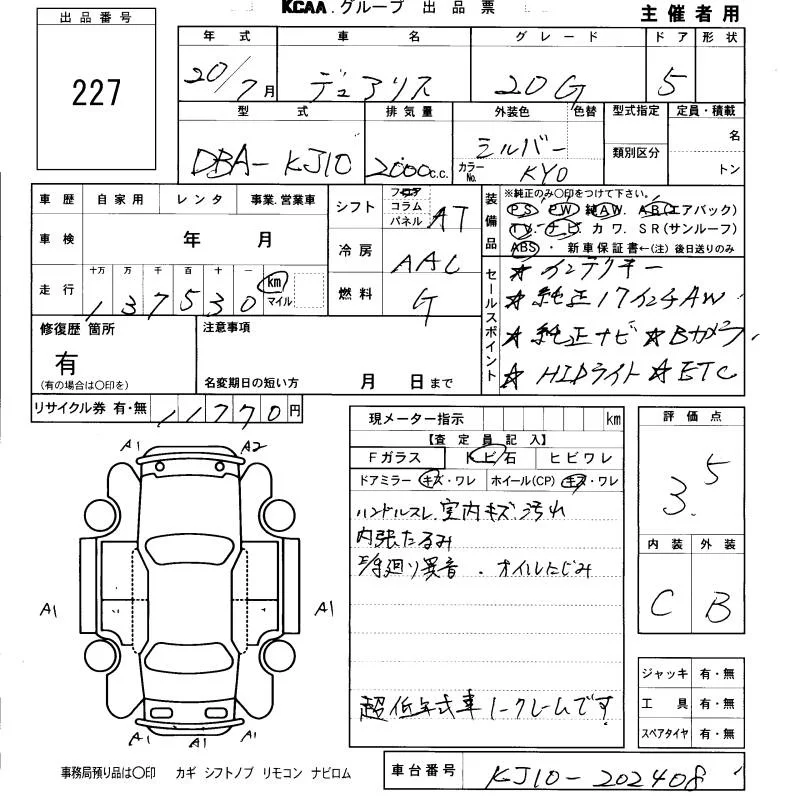 出品番号
227
KCAA.グループ 出品票
主催者用
年式 車名 グレード ドア 形状
20/7月 デュアリス 20G 5
型式 排気量 外装色 色替 型式指定 定員・積載
DBA-KJ10 2000c.c. シルバー カラーNo. KY0 類別区分 名 トン
車歴 自家用 レンタ 事業.営業車
車検 年 月
十万 万 千 百 十 一
走行 137530 km マイル
シフト フロア コラム パネル AT
冷房 AAC
燃料 G
装備品
※純正のみ〇印をつけて下さい。
PS PW 純AW. AB(エアバック)
TV. ナビ カワ. SR(サンルーフ)
ABS ・ 新車保証書←(注)後日送りのみ
セールスポイント
☆インテリキー
☆純正17インチAW
☆純正ナビ ☆Bカメラ
☆HIDライト ☆ETC
修復歴 箇所
有
(有の場合は〇印を)
注意事項
名変期日の短い方 月 日まで
リサイクル券 有・無 11770円
A1 A2
A1 A1
A1 A1 A1
現メーター指示 km
【査定員記入】
Fガラス トビ石 ヒビワレ
ドアミラー キズ・ワレ ホイール(CP) キズ・ワレ
ハンドルスレ.室内キズ.汚れ
内張たるみ
廻り異音 . オイルにじみ
超低年式車 ノークレームです!
評価点
3.5
内装 外装
C B
ジャッキ 有・無
工具 有・無
スペアタイヤ 有・無
事務局預り品は〇印 カギ シフトノブ リモコン ナビロム
車台番号 KJ10-202408